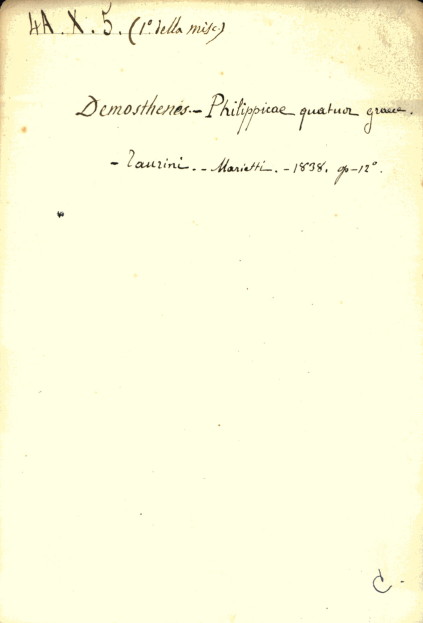 4A. X. 5. (1º della misc)
Demosthenes. - Philippicae quatuor graece.
- Taurini. - Marietti. - 1838. op-12º.
C.